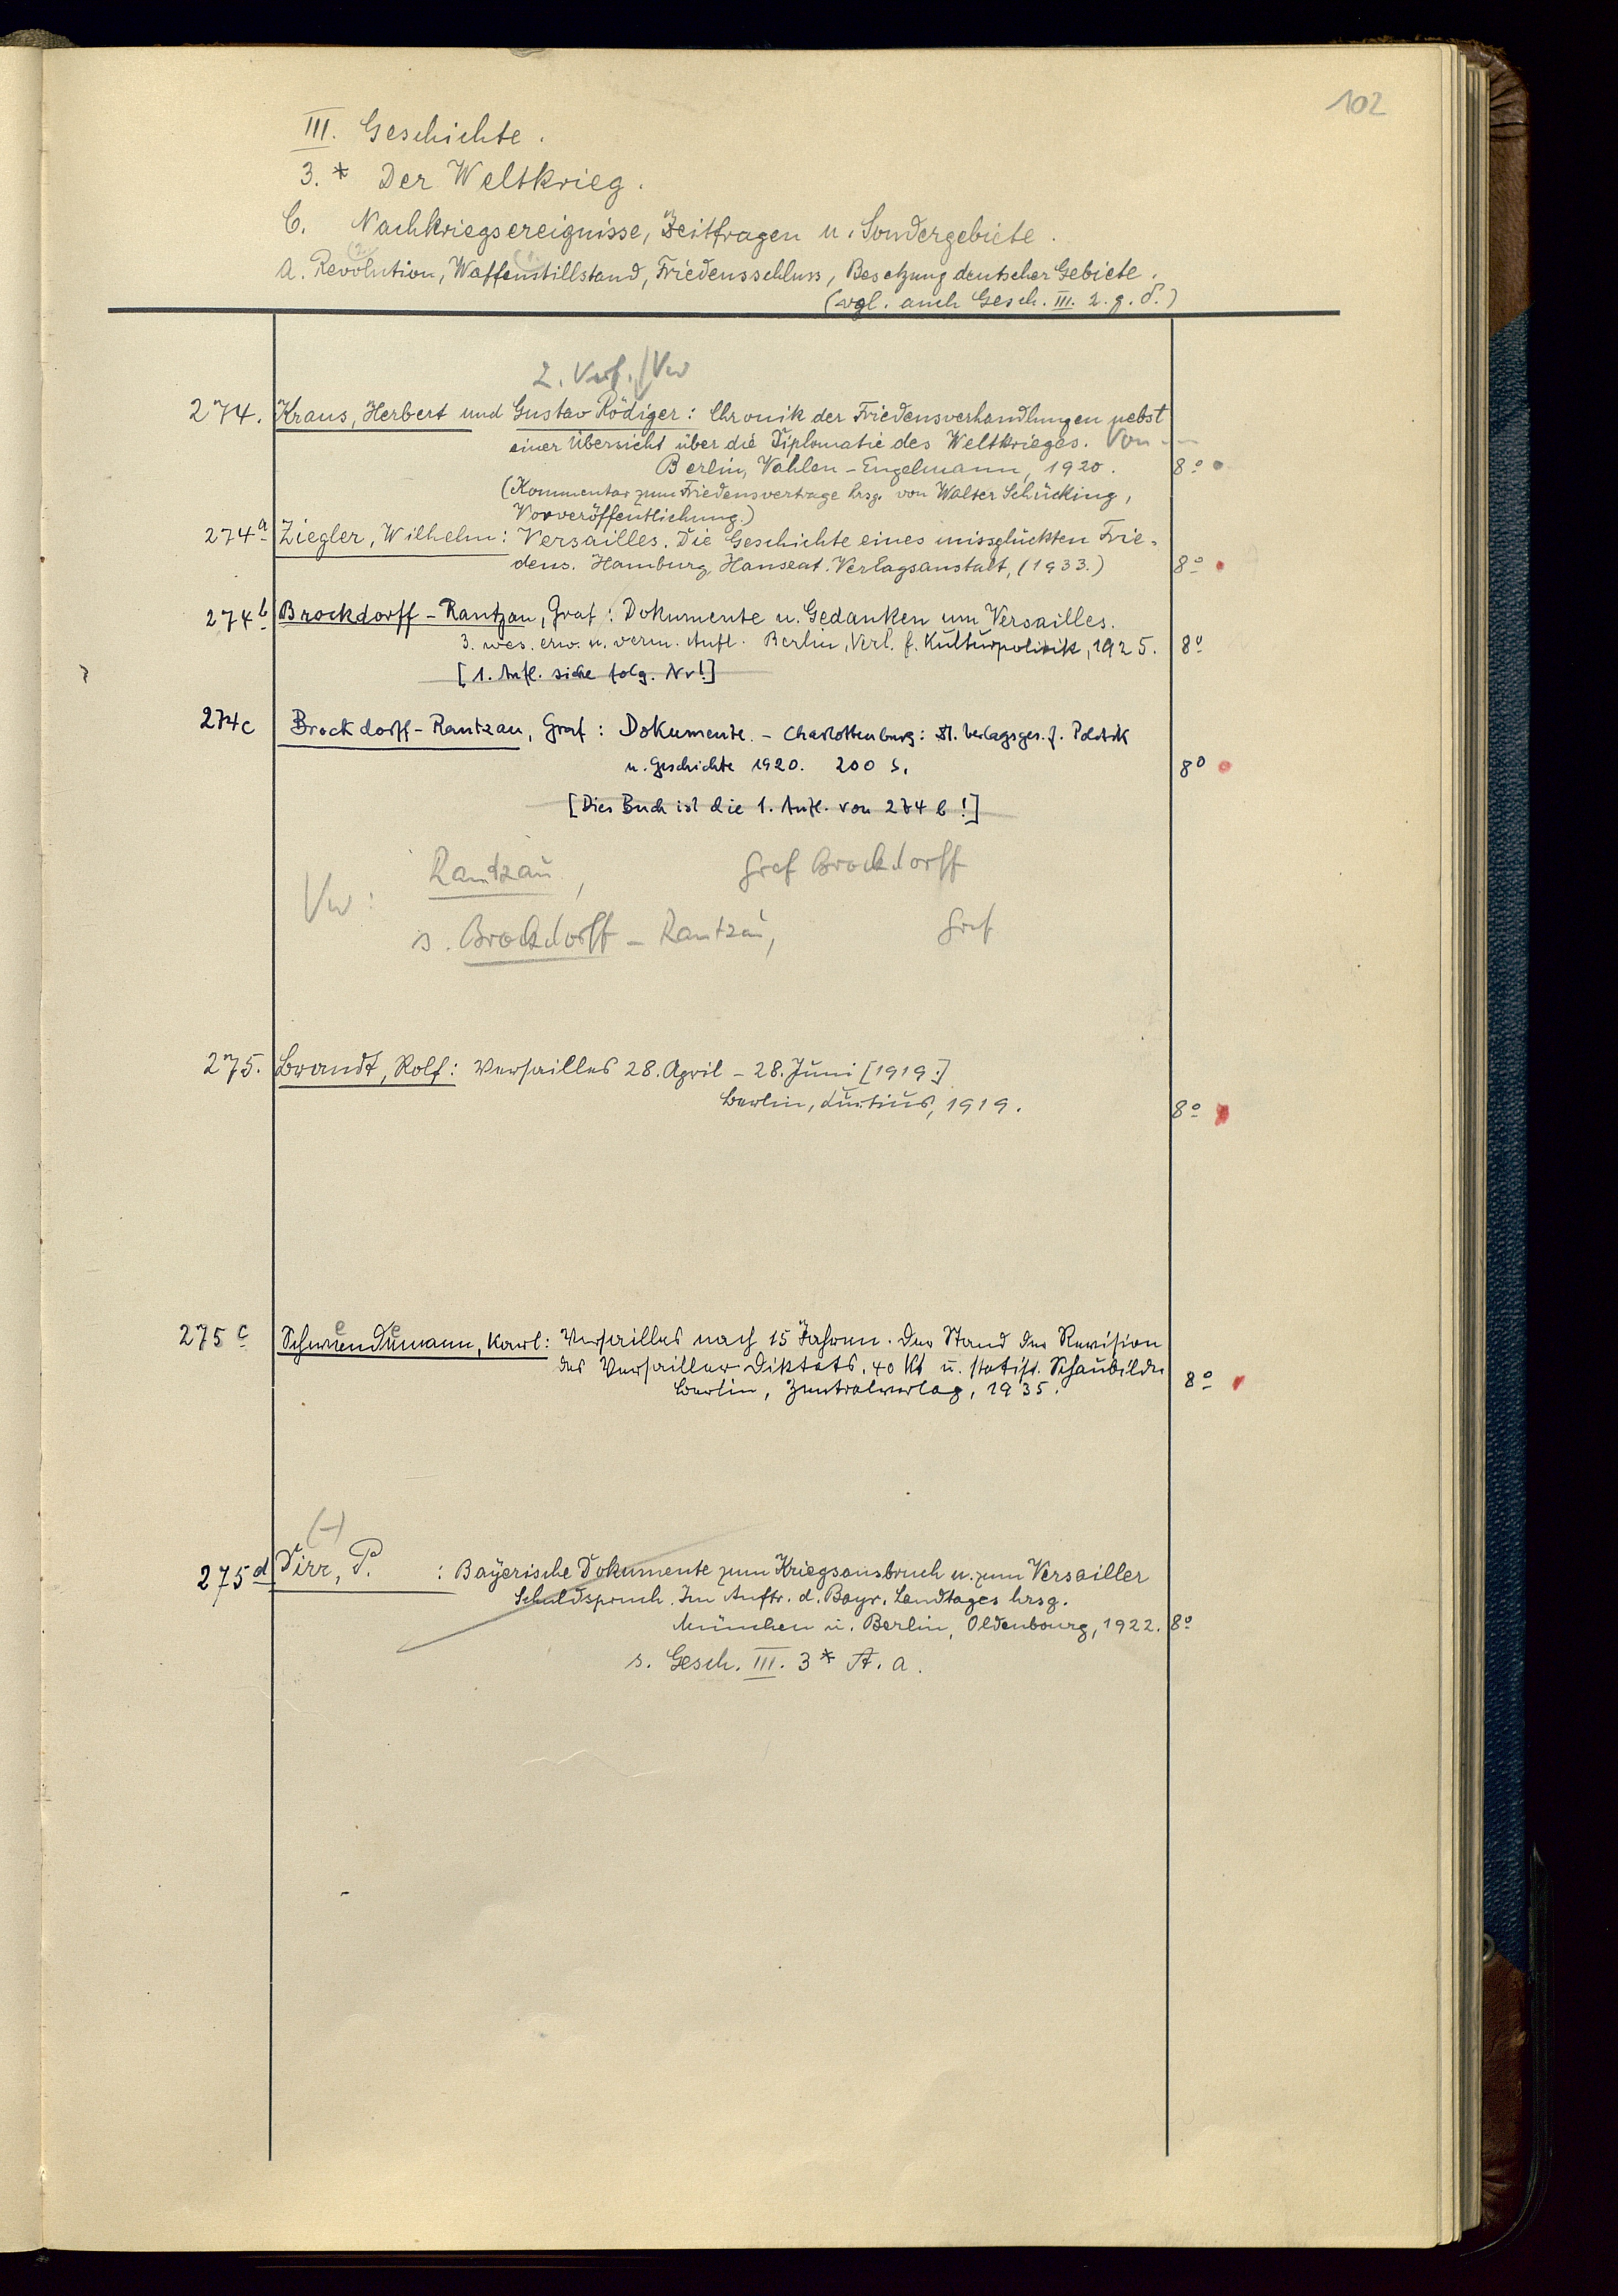 102
III. Geschichte.
3.* Der Weltkrieg.
C. Nachkriegsereignisse, Zeitfragen u. Sondergebiete.
a. Revolution, Waffenstillstand, Friedensschluss, Besetzung deutscher Gebiete.
(vgl. auch Gesch. III. 2. g. δ.)
2. Verf. / Vw
274. Kraus, Herbert und Gustav Rödiger: Chronik der Friedensverhandlungen nebst
einer Übersicht über die Diplomatie des Weltkrieges. Von —
Berlin, Vahlen - Engelmann, 1920. 8°
(Kommentar zum Friedensvertrage hrsg. von Walter Schücking,
Vorveröffentlichung.)
274a Ziegler, Wilhelm: Versailles. Die Geschichte eines missglückten Frie-
dens. Hamburg, Hanseat. Verlagsanstalt, (1933.) 8°
274b Brockdorff-Rantzau, Graf: Dokumente u. Gedanken um Versailles.
3. wes. erw. u. verm. Aufl. Berlin, Verl. f. Kulturpolitik, 1925. 8°
[1. Aufl. siehe folg. Nr!]
274c Brockdorff-Rantzau, Graf: Dokumente. - Charlottenburg: Dt. Verlagsges. f. Politik
u. Geschichte 1920. 200 S. 8°
[Dies Buch ist die 1. Aufl. von 274 b!]
Vw: Rantzau, Graf Brockdorff
s. Brockdorff - Rantzau, Graf
275. Brandt, Rolf: Versailles 28. April - 28. Juni [1919.]
Berlin, 1919. 8°
275c Schwendemann, Karl: Versailles nach 15 Jahren. Der Stand der Revision
des Versailler Diktats. 40 Kt u. statist. Schaubilder
Berlin, Zentralverlag, 1935. 8°
(-)
275d Dirr, P. : Bayerische Dokumente zum Kriegsausbruch u. zum Versailler
Schuldspruch. Im Auftr. d. Bayr. Landtages hrsg.
München u. Berlin, Oldenbourg, 1922. 8°
s. Gesch. III. 3* A. a.